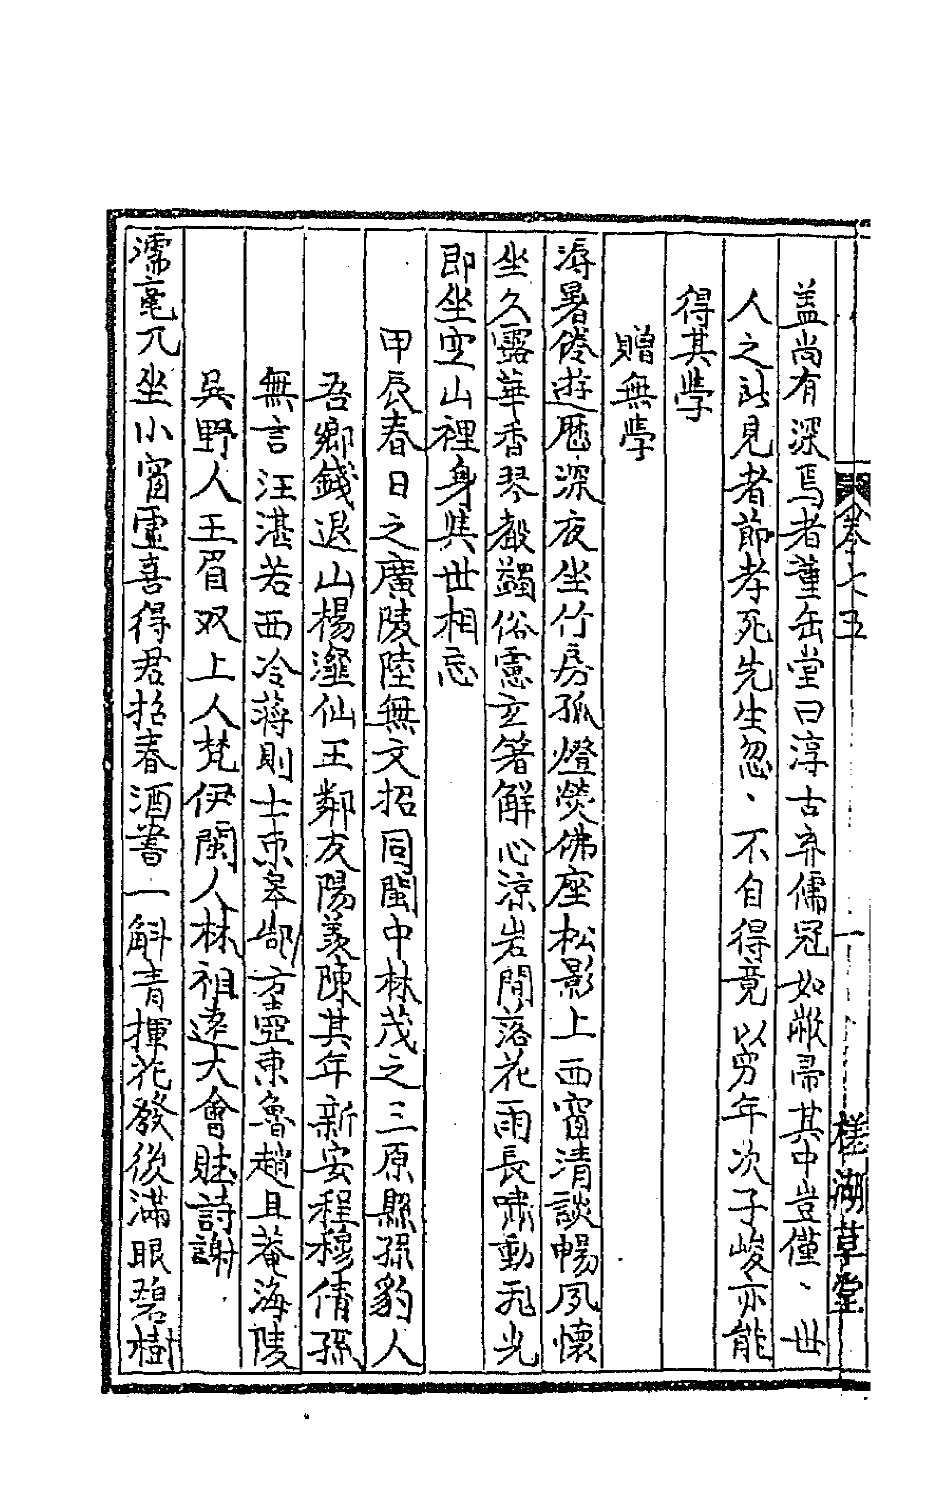 卷六五
一
槎湖草堂
盖尚有深焉者董缶堂曰淳古弃儒冠如敝帚其中豈僅、世
人之所見者節孝死先生忽、不自得竟以穷年次子峻亦能
得其學
贈無學
溽暑倦遊歷深夜坐竹房孤燈熒佛座松影上西窗清談暢夙懷
坐久露華香琴數蠲俗慮玄箸解心涼岩間落花雨長嘯動飛光
即坐空山裡身與世相忘
甲辰春日之廣陵陸無文招同閩中林茂之三原縣孫豹人
吾鄉錢退山楊瀣仙王鄰友陽羡陳其年新安程穆倩孫
無言汪湛若西冷蔣則士東皋郝方壺東魯趙且菴海陵
吳野人王眉双上人梵伊閩人林祖遠大會賦詩謝
濡毫兀坐小窗虛喜得君招春酒薯一斛青揮花發後滿眼碧樹